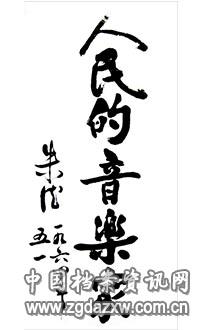 人民的音樂家
朱德
一九六
五一
中国档案资讯网
www.zgdazxw.com.cn